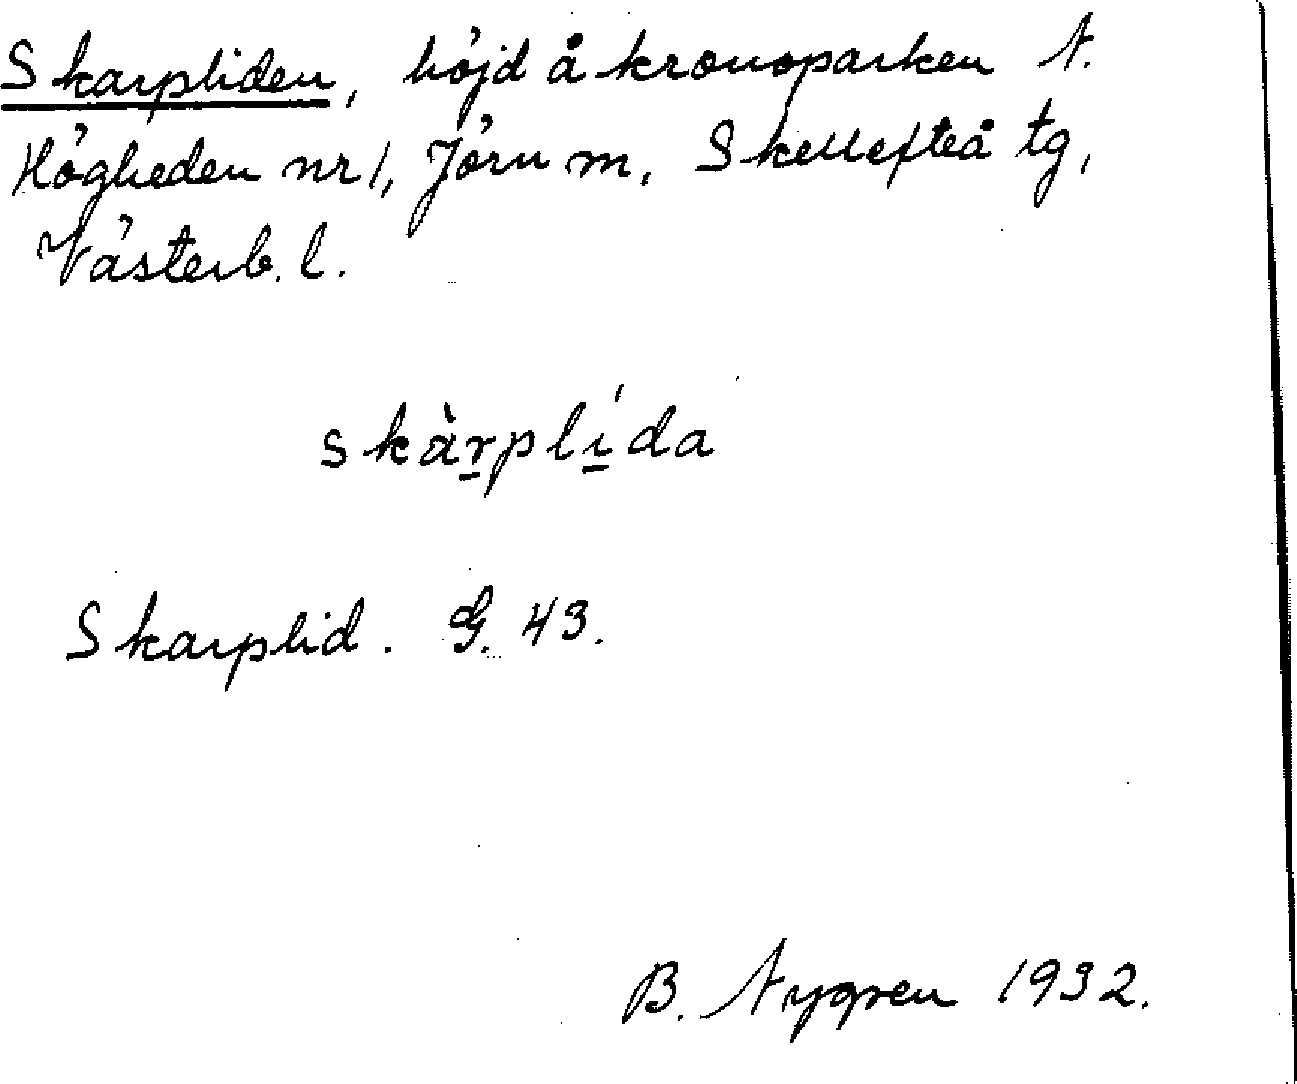 Skarpliden, höjd å kronoparken N.
Högheden nr 1, Jörn m, Skellefteå tg,
Västerb. l.
skàr̲plí̲da
Skarplid. G. 43.
B. Nygren 1932.